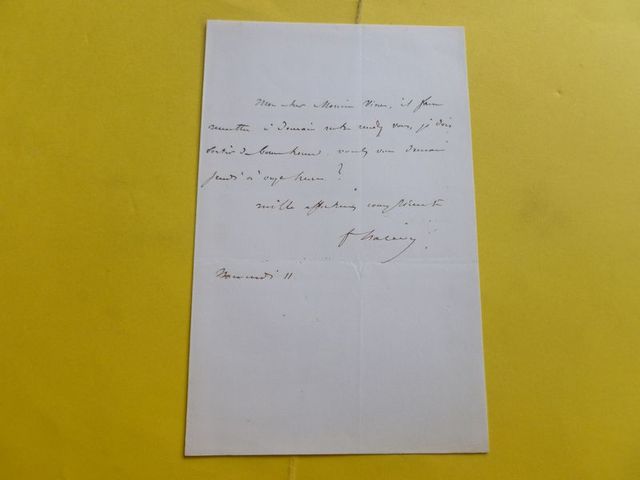 Mon cher Monsieur Vieu, il faut
remettre à demain notre rendez vous, je dois
sortir de bonne heure. voulez vous demain
jeudi à onze heures ?
mille affectueux compliments
f halévy
mercredi 11